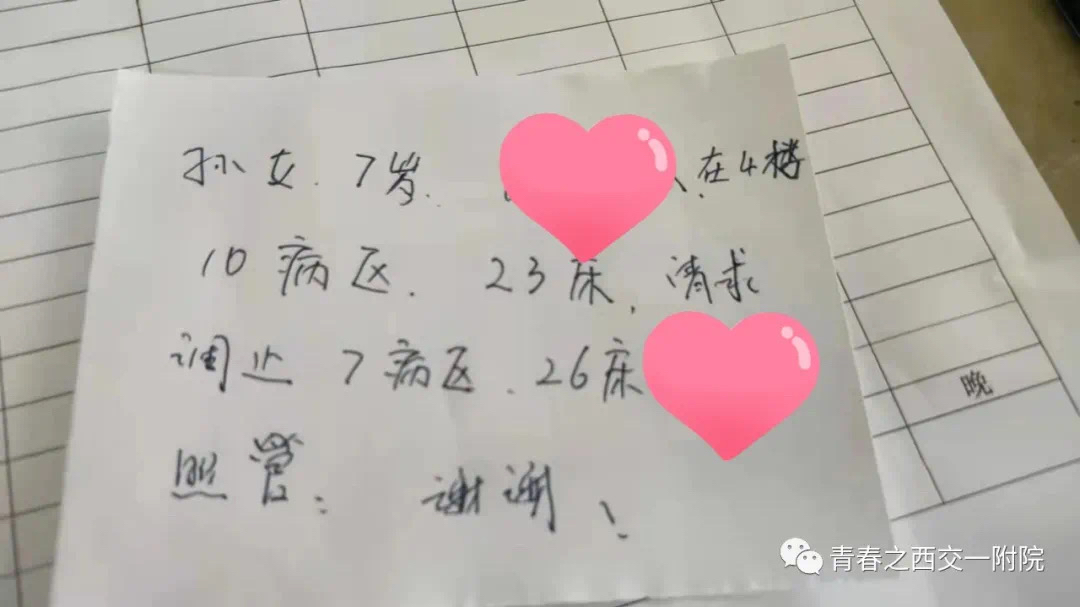 孙女、7岁、
、在4楼
10病区、23床,请求
调近7病区、26床
照管。谢谢、
晚
青春之西交一附院